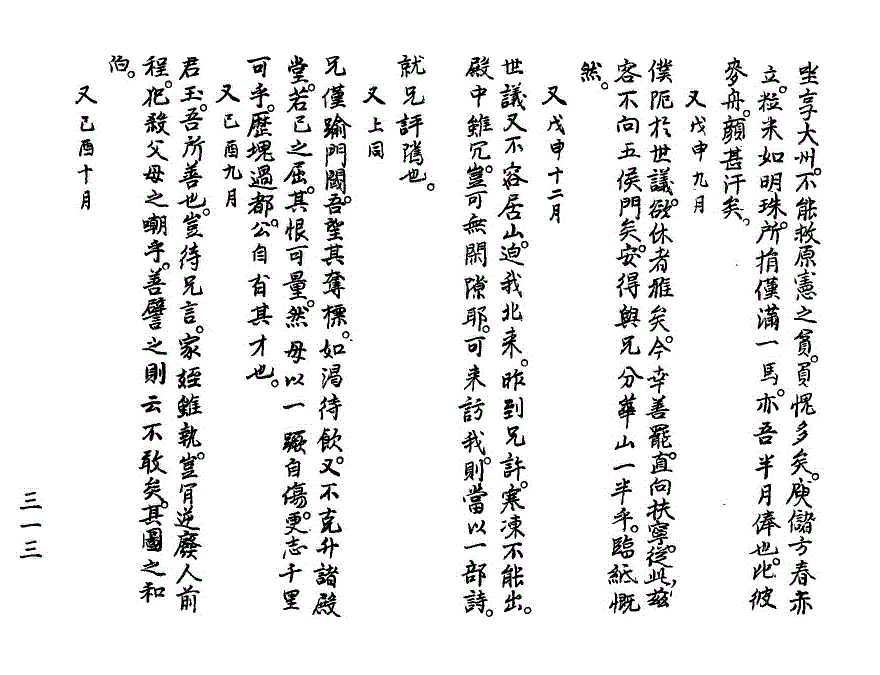 坐享大州。不能救原憲之貧。負愧多矣。庾儲方春赤
立。粒米如明珠。所捐僅滿一馬。亦吾半月俸也。比彼
麥舟。顔甚汗矣。
又 戊申九月
僕阨於世議。欲休者雅矣。今幸善罷。直向扶寧。從此。玆
客不向五侯門矣。安得與兄分華山一半乎。臨紙慨
然。
又 戊申十二月
世議又不容居山。迫我北來。昨到兄許。寒凍不能出。
殿中雖冗。豈可無閑隙耶。可來訪我。則當以一部詩。
就兄評隲也。
又 上同
兄僅踰門閾。吾望其奪標。如渴待飮。又不克升諸殿
堂。若已之屈。其恨可量。然毋以一蹶自傷。更志千里
可乎。歷塊過都。公自有其才也。
又 己酉九月
君玉。吾所善也。豈待兄言。家姪雖執。豈肯逆癈人前
程。犯殺父母之嘲乎。善譬之則云不敢矣。其圖之和
陷。
又 己酉十月
三一三